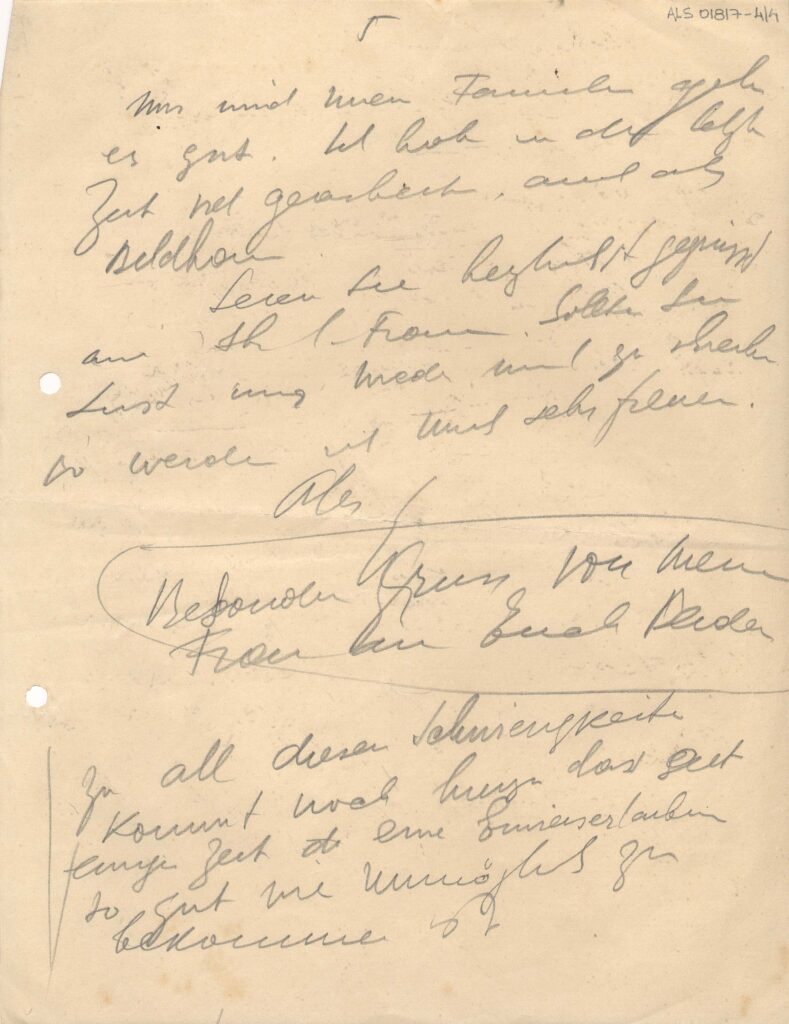 ALS 01817-4/4
5
Mir und meiner Familie geht
es gut. Ich habe in der letzten
Zeit viel gearbeitet, auch als
Bildhauer
Seien Sie herzlichst gegrüsst
an Ihre Frau. Sollten Sie
Lust mir zu schreiben
so werde ich mich sehr freuen.
Alles
Besonderen Gruss von meiner
Frau an Euch Beiden
Zu all diesen Schwierigkeiten
kommt noch hinzu das seit
einige Zeit eine Einreiserlaubnis
so gut wie unmöglich zu
bekommen ist